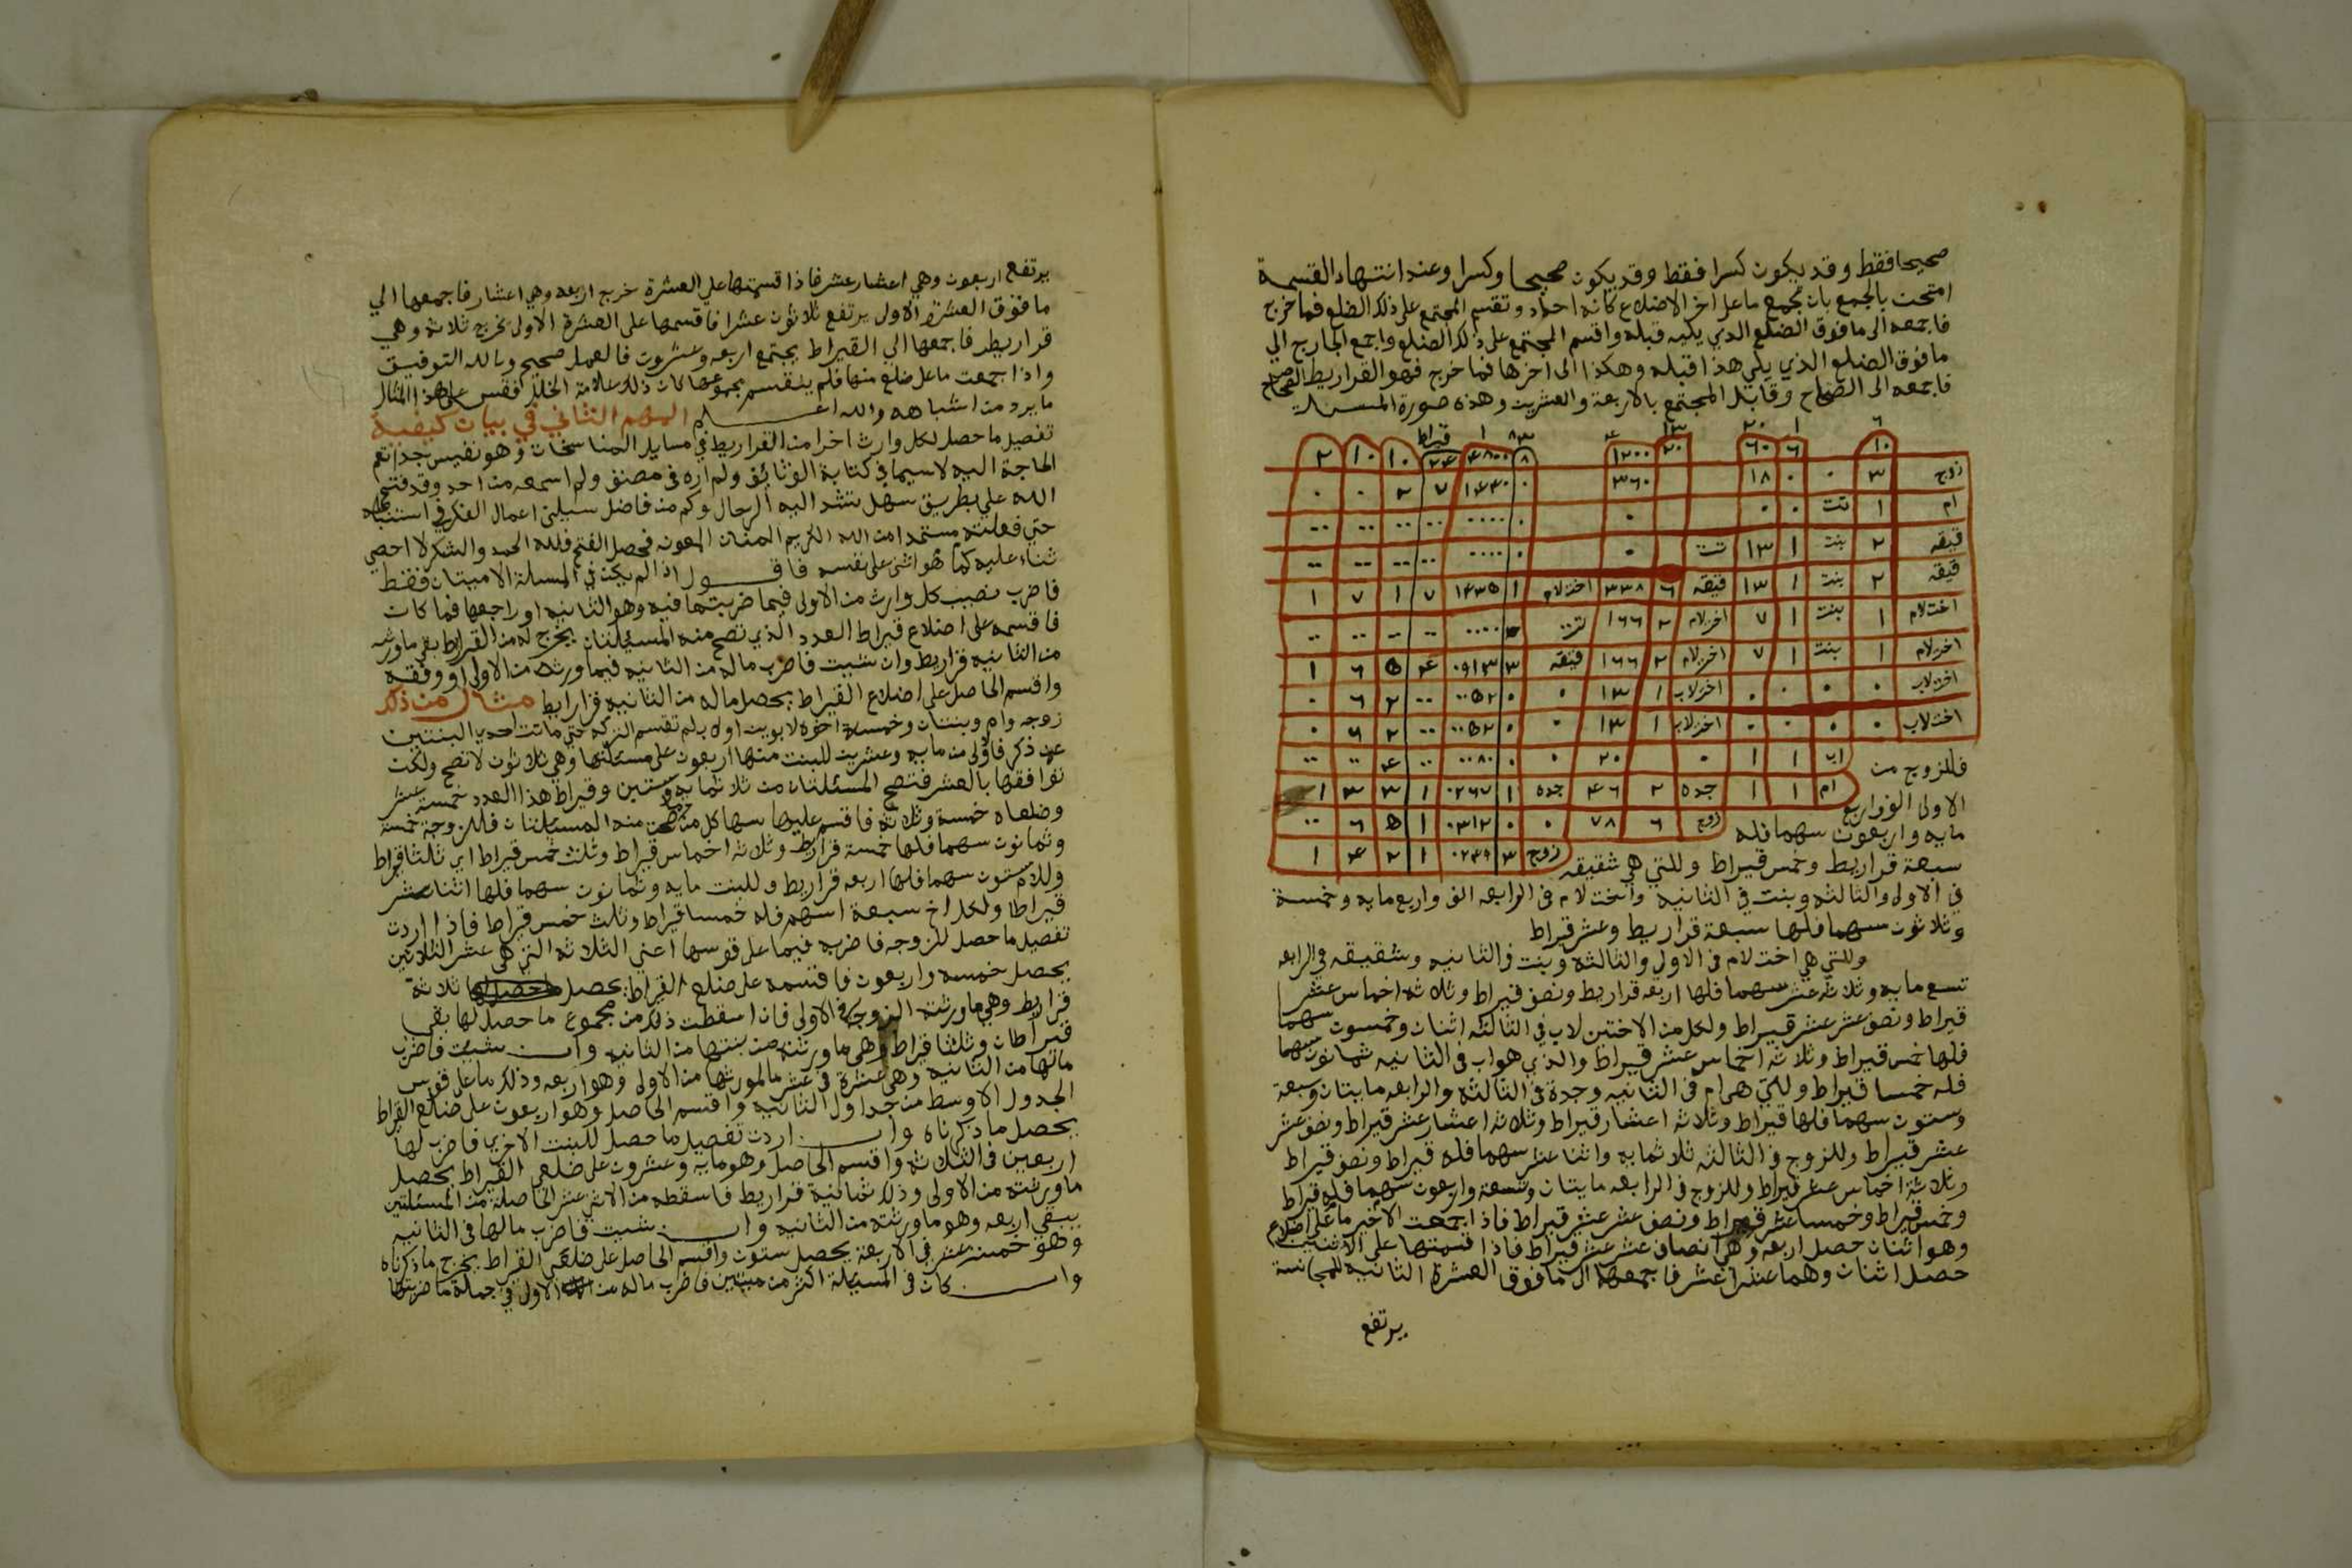 صحيحا فقط وقد يكون كسرا فقط وقد يكون صحيحا وكسرا وعند انتهاء القسمة
امتحن بالجمع بان تجمع ما على اخر الاضلاع كانه احاد وتقسم المجتمع على ذلك الضلع فما خرج
فاجمعه الى ما فوق الضلع الذي يليه قبله واقسم المجتمع على ذلك الضلع واجمع الخارج الي
ما فوق الضلع الذي يلي هذا قبله وهكذا الى اخرها فما خرج فهو القراريط
فاجمعه الى الصحاح وقابل المجتمع بالاربعة والعشرين وهذه صورة المسئلة
٦ ١ ٢٠ ١٣ ١ قيراط
١٠ ٦ ٦٠ ٢٠ ١٢٠٠ ٨ ٤٨٠٠ ٢٤ ١٠ ١٠ ٢
زوج ٣ ٠ ٠ ١٨ ٣٦٠ ٠ ١٤٤٠ ٧ ٢ ٠ ٠
ام ١ تت ٠ ٠ ٠ ٠ ٠٠٠٠ ٠٠ ٠٠ ٠٠ ٠٠
قيقه ٢ بنت ١ ١٣ تت ٠ ٠ ٠٠٠٠ ٠٠ ٠٠ ٠٠ ٠٠
قيقه ٢ بنت ١ ١٣ قيقه ٦ ٣٣٨ اختلام ١ ١٤٣٥ ٧ ١ ٧ ١
اختلام ١ بنت ١ ٧ اخرلام ٢ ١٦٦ ٠٠٠٠ ٠٠ ٠٠ ٠٠ ٠٠
اخرلام ١ بنت ١ ٧ اخرلام ٢ ١٦٦ قيقه ٣ ٠٩١٣ ٤ ٥ ٦ ١
اخرلاب ٠ ٠ ٠ ٠ اخرلاب ١ ١٣ ٠ ٠ ٠٠٥٢ ٠٠ ٢ ٦ ٠
اختلاب ٠ ٠ ٠ ٠ اخرلاب ١ ١٣ ٠ ٠ ٠٠٥٢ ٠٠ ٢ ٦ ٠
اب ١ ١ ٠ ٢٠ ٠ ٠ ٠٠٨٠ ٠٠ ٤ ٠٠ ٠٠
ام ١ ١ جده ٢ ٤٦ جده ١ ٠٢٦٧ ١ ٣ ٣ ١
زوج ٦ ٧٨ ٠ ٠ ٠٣١٢ ١ ٥ ٦ ٠٠
زوج ٣ ٠٢٤٩ ١ ٢ ٤ ١
فللزوج من
الاولى الف واربع
مايه واربعون سهما فله
سبعة قراريط وخمس قيراط وللتي هي شقيقه
في الاولى والثالثه وبنت في الثانيه واخت لام في الرابعه الف واربع مايه وخمسة
وثلاثون سهما فلها سبعة قراريط وعشر قيراط
وللتي هي اخت لام في الاولى والثالثه وبنت في الثانيه وشقيقه في الرابعه
تسع مايه وثلاثه عشر سهما فلها اربعه قراريط ونصف قيراط وثلاثه اخماس عشر
قيراط ونصف عشر عشر قيراط ولكل من الاختين لاب في الثالثه اثنان وخمسون سهما
فلها خمس قيراط وثلاثه اخماس عشر قيراط والذي هو اب في الثانيه ثمانون سهما
فله خمسا قيراط وللتي هي ام في الثانيه وجدة في الثالثه والرابعه مايتان وسبعة
وستون سهما فلها قيراط وثلاثه اعشار قيراط وثلاثه اعشار عشر قيراط ونصف عشر
عشر قيراط وللزوج في الثالثه ثلاثمايه واثنا عشر سهما فله قيراط ونصف قيراط
وثلاثة اخماس عشر قيراط وللزوج في الرابعه مايتان وتسعة واربعون سهما فله قيراط
وخمس قيراط وخمسا عشر قيراط ونصف عشر عشر قيراط فاذا جمعت الاخير ما على اضلاع
وهو اثنان حصل اربعه وهي انصاف عشر عشر قيراط فاذا قسمتها على الاثنين
حصل اثنان وهما عشرا عشر فاجمعها الى ما فوق العشرة الثانيه للمجانسة
يرتفع
يرتفع اربعون وهي اعشار عشر فاذا قسمتها على العشرة خرج اربعه وهي اعشار فاجمعها الي
ما فوق العشرة الاولى يرتفع ثلاثون عشرا فاقسمها على العشرة الاولى تخرج ثلاثه وهي
قراريط فاجمعها الي القيراط يجتمع اربعه وعشرون فالعمل صحيح وبالله التوفيق
واذا جمعت ما على ضلع منها فلم ينقسم مجموعها كان ذلك علامة الخلل فقس على هذا المثال
ما يرد من اشباهه والله اعلم المهم الثاني في بيان كيفية
تفصيل ما حصل لكل وارث اخرا من القراريط في مسايل المناسخات وهو نفيس جدا تعم
الحاجة اليه لاسيما في كتابة الوثائق ولم اره في مصنف ولم اسمعه من احد وقد فتح
الله علي بطريق سهل تشد اليه الرحال وكم من فاضل سيلني اعمال الفكر في استنباطه
حتى فعلته مستمدا من الله الكريم المنان المعونه فحصل الفتح فلله الحمد والشكر لا احصي
ثناء عليه كما هو اثنى على نفسه فاقول اذا لم يكن في المسيلة الا ميتان فقط
فاضرب نصيب كل وارث من الاولى فيما ضربتها فيه وهو الثانيه او راجعها فما كان
فاقسمه على اضلاع قيراط العدد الذي تصح منه المسئلتان يخرج له من القراريط بقدر ما ورثه
من الثانيه قراريط وان شيت فاضرب ماله من الثانيه فيما ورثه من الاولى او وفقه
واقسم الحاصل على اضلاع القيراط يحصل ماله من الثانيه قراريط مثال من ذلك
زوجه وام وبنتان وخمسة اخوه لابوين او لاب لم تقسم التركه حتى ماتت احدى البنتين
عن ذكر فالاولى من مايه وعشرين للبنت منها اربعون على مسئلتها وهي ثلاثون لا تصح ولكن
توافقها بالعشر فتصح المسئلتان من ثلاثمايه وستين وقيراط هذا العدد خمسة عشر
وضلعاه خمسة وثلاثه فاقسم عليها سهام كل من صحت منه المسيلتان فللزوجة خمسة
وثمانون سهما فلها خمسة قراريط وثلاثه اخماس قيراط وثلث خمس قيراط اي ثلثا قيراط
وللام ستون سهما فلها اربعه قراريط وللبنت مايه وثمانون سهما فلها اثنا عشر
قيراطا ولكل اخ سبعة اسهم فله خمسا قيراط وثلث خمس قيراط فاذا اردت
تفصيل ما حصل للزوجه فاضربه فيما على قوسها اعني الثلاثه التي هي عشر الثلاثين
يحصل خمسه واربعون فاقسمه على ضلع القيراط يحصل ثلاثة
قراريط وهي ما ورثته الزوجه في الاولى فان اسقطت ذلك من مجموع ما حصل لها بقي
قيراطان وثلثا قيراط وهي ما ورثته من بنتها من الثانيه وان شيت فاضرب
مالها من الثانيه وهي عشرة في عشر ما لمورثها من الاولى وهو اربعه وذلك ما على قوس
الجدول الاوسط من جداول الثانيه واقسم الحاصل وهو اربعون على ضلع القيراط
يحصل ما ذكرناه وان اردت تفصيل ما حصل للبنت الاخرى فاضرب لها
اربعين في الثلاثه واقسم الحاصل وهو مايه وعشرون على ضلعي القيراط يحصل
ما ورثته من الاولى وذلك ثمانية قراريط فاسقطه من الاثني عشر الحاصلة من المسئلتين
يبقى اربعه وهو ما ورثته من الثانيه وان شيت فاضرب مالها في الثانيه
وهو خمسة عشر في الاربعة يحصل ستون واقسم الحاصل على ضلعي القيراط يخرج ما ذكرناه
وان كان في المسيلة اكثر من ميتين فاضرب ماله من الاولى في جملة ما ضربتها